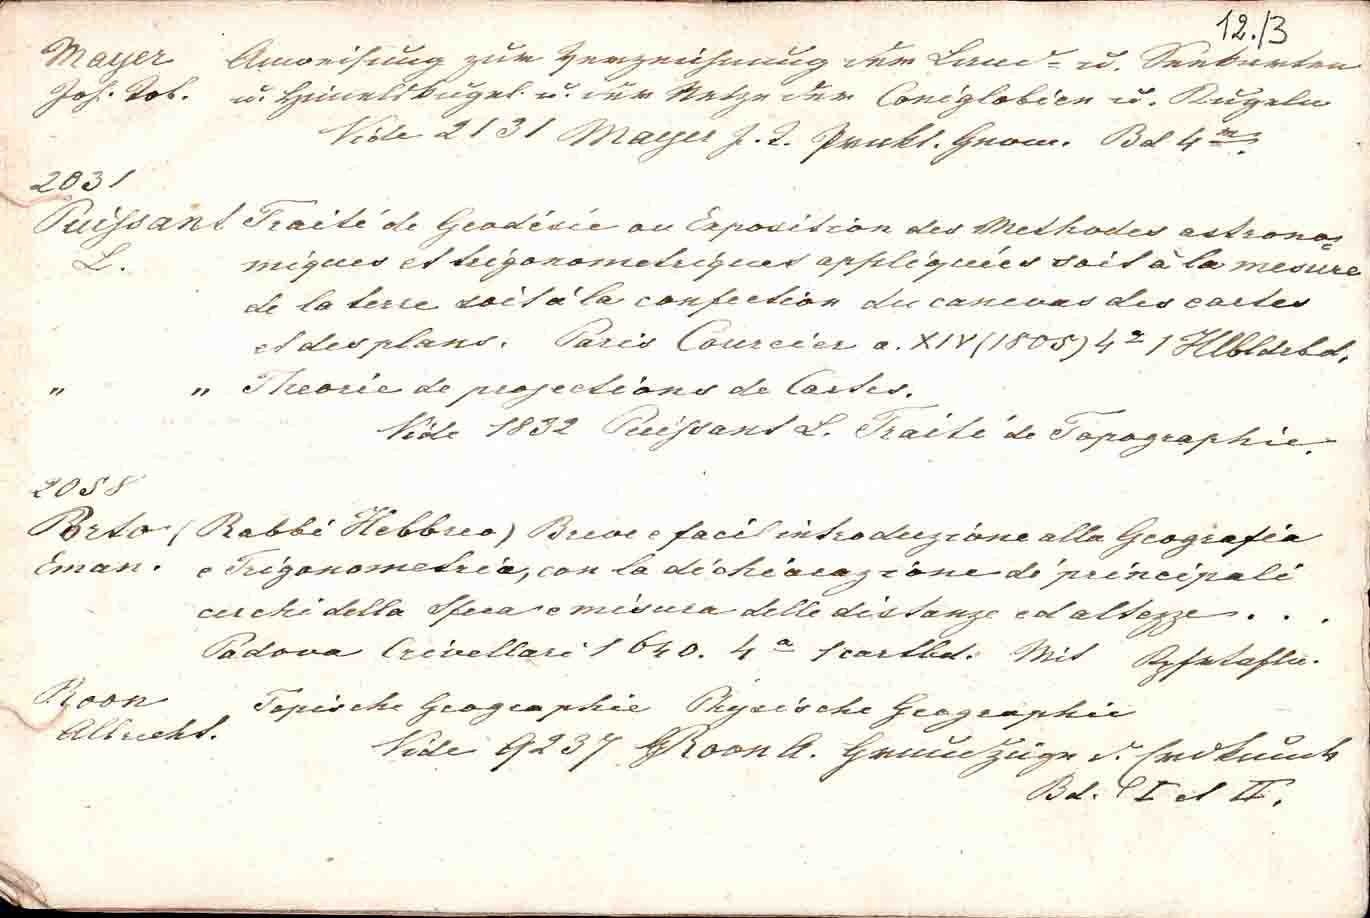 12./3
Mayer Anweisung zur Verzeichnung der Land- u. Seekarten
Joh. Tob. u. Himelskugel u. der Netze der Coniglobien u. Kugeln
Vide 2131 Mayer J. T. Prakt. Geom. Bd 4
2031
Puissant Traité de Geodésie ou Exposition des Methodes astrono-
L. miques et trigonometriques appliquées soit à la mesure
de la terre soit à la confection du canevas des cartes
et des plans. Paris Courcier a. XIV (1805) 4° 1 Hlbldrbd.
" " Theorie de projections de Cartes.
Vide 1832 Puissant L. Traité de Topographie.
2058
Porto (Rabbi Hebbreo) Breve e facil introduzione alla Geografia
Eman. e Trigonometria, con la dichiarazione de principali
cerchi della Sfera e misura delle distanze ed altezze . . .
Padova Crivellari 1640. 4° 1 cartbd. Mit
Roon Topische Geographie Physische Geographie
Albrecht. Vide 9237 Roon A. Grundzüge d. Erdkunde
Bd. I et II.